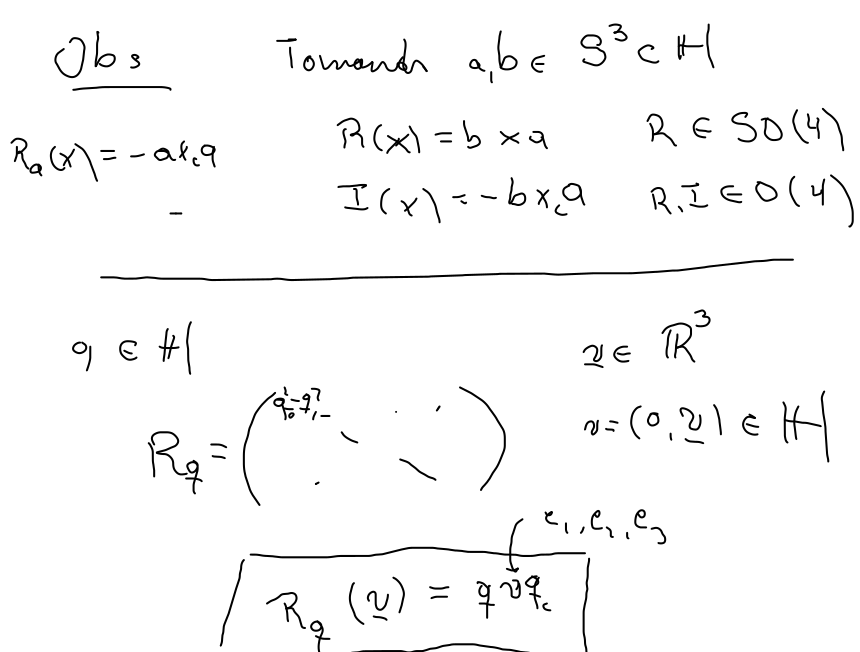 Obs Tomando a,b ∈ S³ ⊂ ℍ
R_a(x) = - a x_c a R(x) = b x a R ∈ SO(4)
I(x) = - b x_c a R, I ∈ O(4)
q ∈ ℍ v ∈ ℝ³
v = (0, v) ∈ ℍ
R_q =
e_1, e_2, e_3
R_q (v) = q v q_c